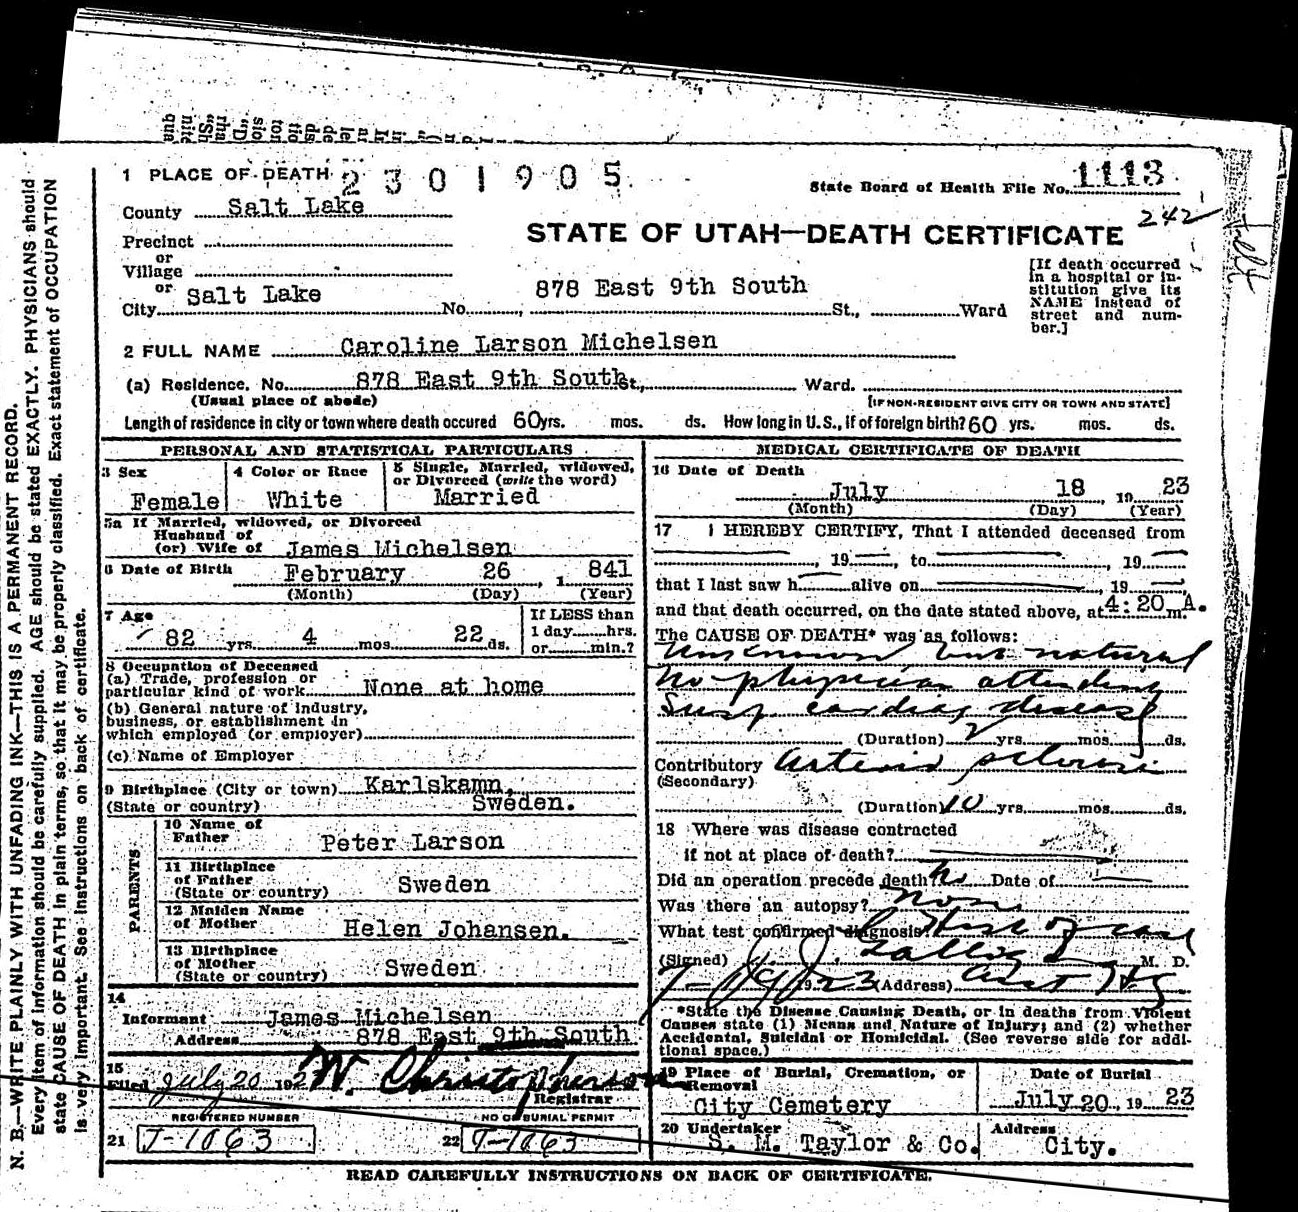 1 PLACE OF DEATH 2301905
State Board of Health File No. 1113
242
County Salt Lake
STATE OF UTAH—DEATH CERTIFICATE
Precinct
or
Village
or
City Salt Lake No. 878 East 9th South St., Ward
[If death occurred
in a hospital or in-
stitution give its
NAME instead of
street and num-
ber.]
2 FULL NAME Caroline Larson Michelsen
(a) Residence. No. 878 East 9th South St., Ward.
(Usual place of abode) [IF NON-RESIDENT GIVE CITY OR TOWN AND STATE]
Length of residence in city or town where death occured 60 yrs. mos. ds. How long in U.S., if of foreign birth? 60 yrs. mos. ds.
PERSONAL AND STATISTICAL PARTICULARS
3 Sex
Female
4 Color or Race
White
5 Single, Married, widowed,
or Divorced (write the word)
Married
5a If Married, widowed, or Divorced
Husband of
(or) Wife of James Michelsen
6 Date of Birth February 26, 1841
(Month) (Day) (Year)
7 Age
82 yrs. 4 mos. 22 ds.
If LESS than
1 day......hrs.
or......min.?
8 Occupation of Deceased
(a) Trade, profession or
particular kind of work None at home
(b) General nature of Industry,
business, or establishment in
which employed (or employer)
(c) Name of Employer
9 Birthplace (City or town) Karlskamn,
(State or country) Sweden.
PARENTS
10 Name of
Father Peter Larson
11 Birthplace
of Father Sweden
(State or country)
12 Maiden Name
of Mother Helen Johansen.
13 Birthplace
of Mother Sweden
(State or country)
14
Informant James Michelsen
Address 878 East 9th South
15
Filed July 20 192 W. Christopherson
Registrar
REGISTERED NUMBER
NO OF BURIAL PERMIT
21 J-1063
22 J-1063
MEDICAL CERTIFICATE OF DEATH
16 Date of Death
July 18, 1923
(Month) (Day) (Year)
17 I HEREBY CERTIFY, That I attended deceased from
, 19 to , 19
that I last saw h alive on , 19
and that death occurred, on the date stated above, at 4:20 m A.
The CAUSE OF DEATH* was as follows:
Unknown but natural
No physician attendent
Susp. cardiac disease
(Duration) 2 yrs. mos. ds.
Contributory Arterio sclerosis
(Secondary)
(Duration) 10 yrs. mos. ds.
18 Where was disease contracted
if not at place of death?
Did an operation precede death? No Date of
Was there an autopsy? None
What test confirmed diagnosis? Hist of case
(Signed) M. D.
7-19 1923 (Address)
*State the Disease Causing Death, or in deaths from Violent
Causes state (1) Means and Nature of Injury; and (2) whether
Accidental, Suicidal or Homicidal. (See reverse side for addi-
tional space.)
19 Place of Burial, Cremation, or
Removal
City Cemetery
Date of Burial
July 20, 1923
20 Undertaker
S. M. Taylor & Co.
Address
City.
READ CAREFULLY INSTRUCTIONS ON BACK OF CERTIFICATE.
N. B.—WRITE PLAINLY WITH UNFADING INK—THIS IS A PERMANENT RECORD.
Every item of information should be carefully supplied. AGE should be stated EXACTLY. PHYSICIANS should
state CAUSE OF DEATH in plain terms, so that it may be properly classified. Exact statement of OCCUPATION
is very important. See instructions on back of certificate.